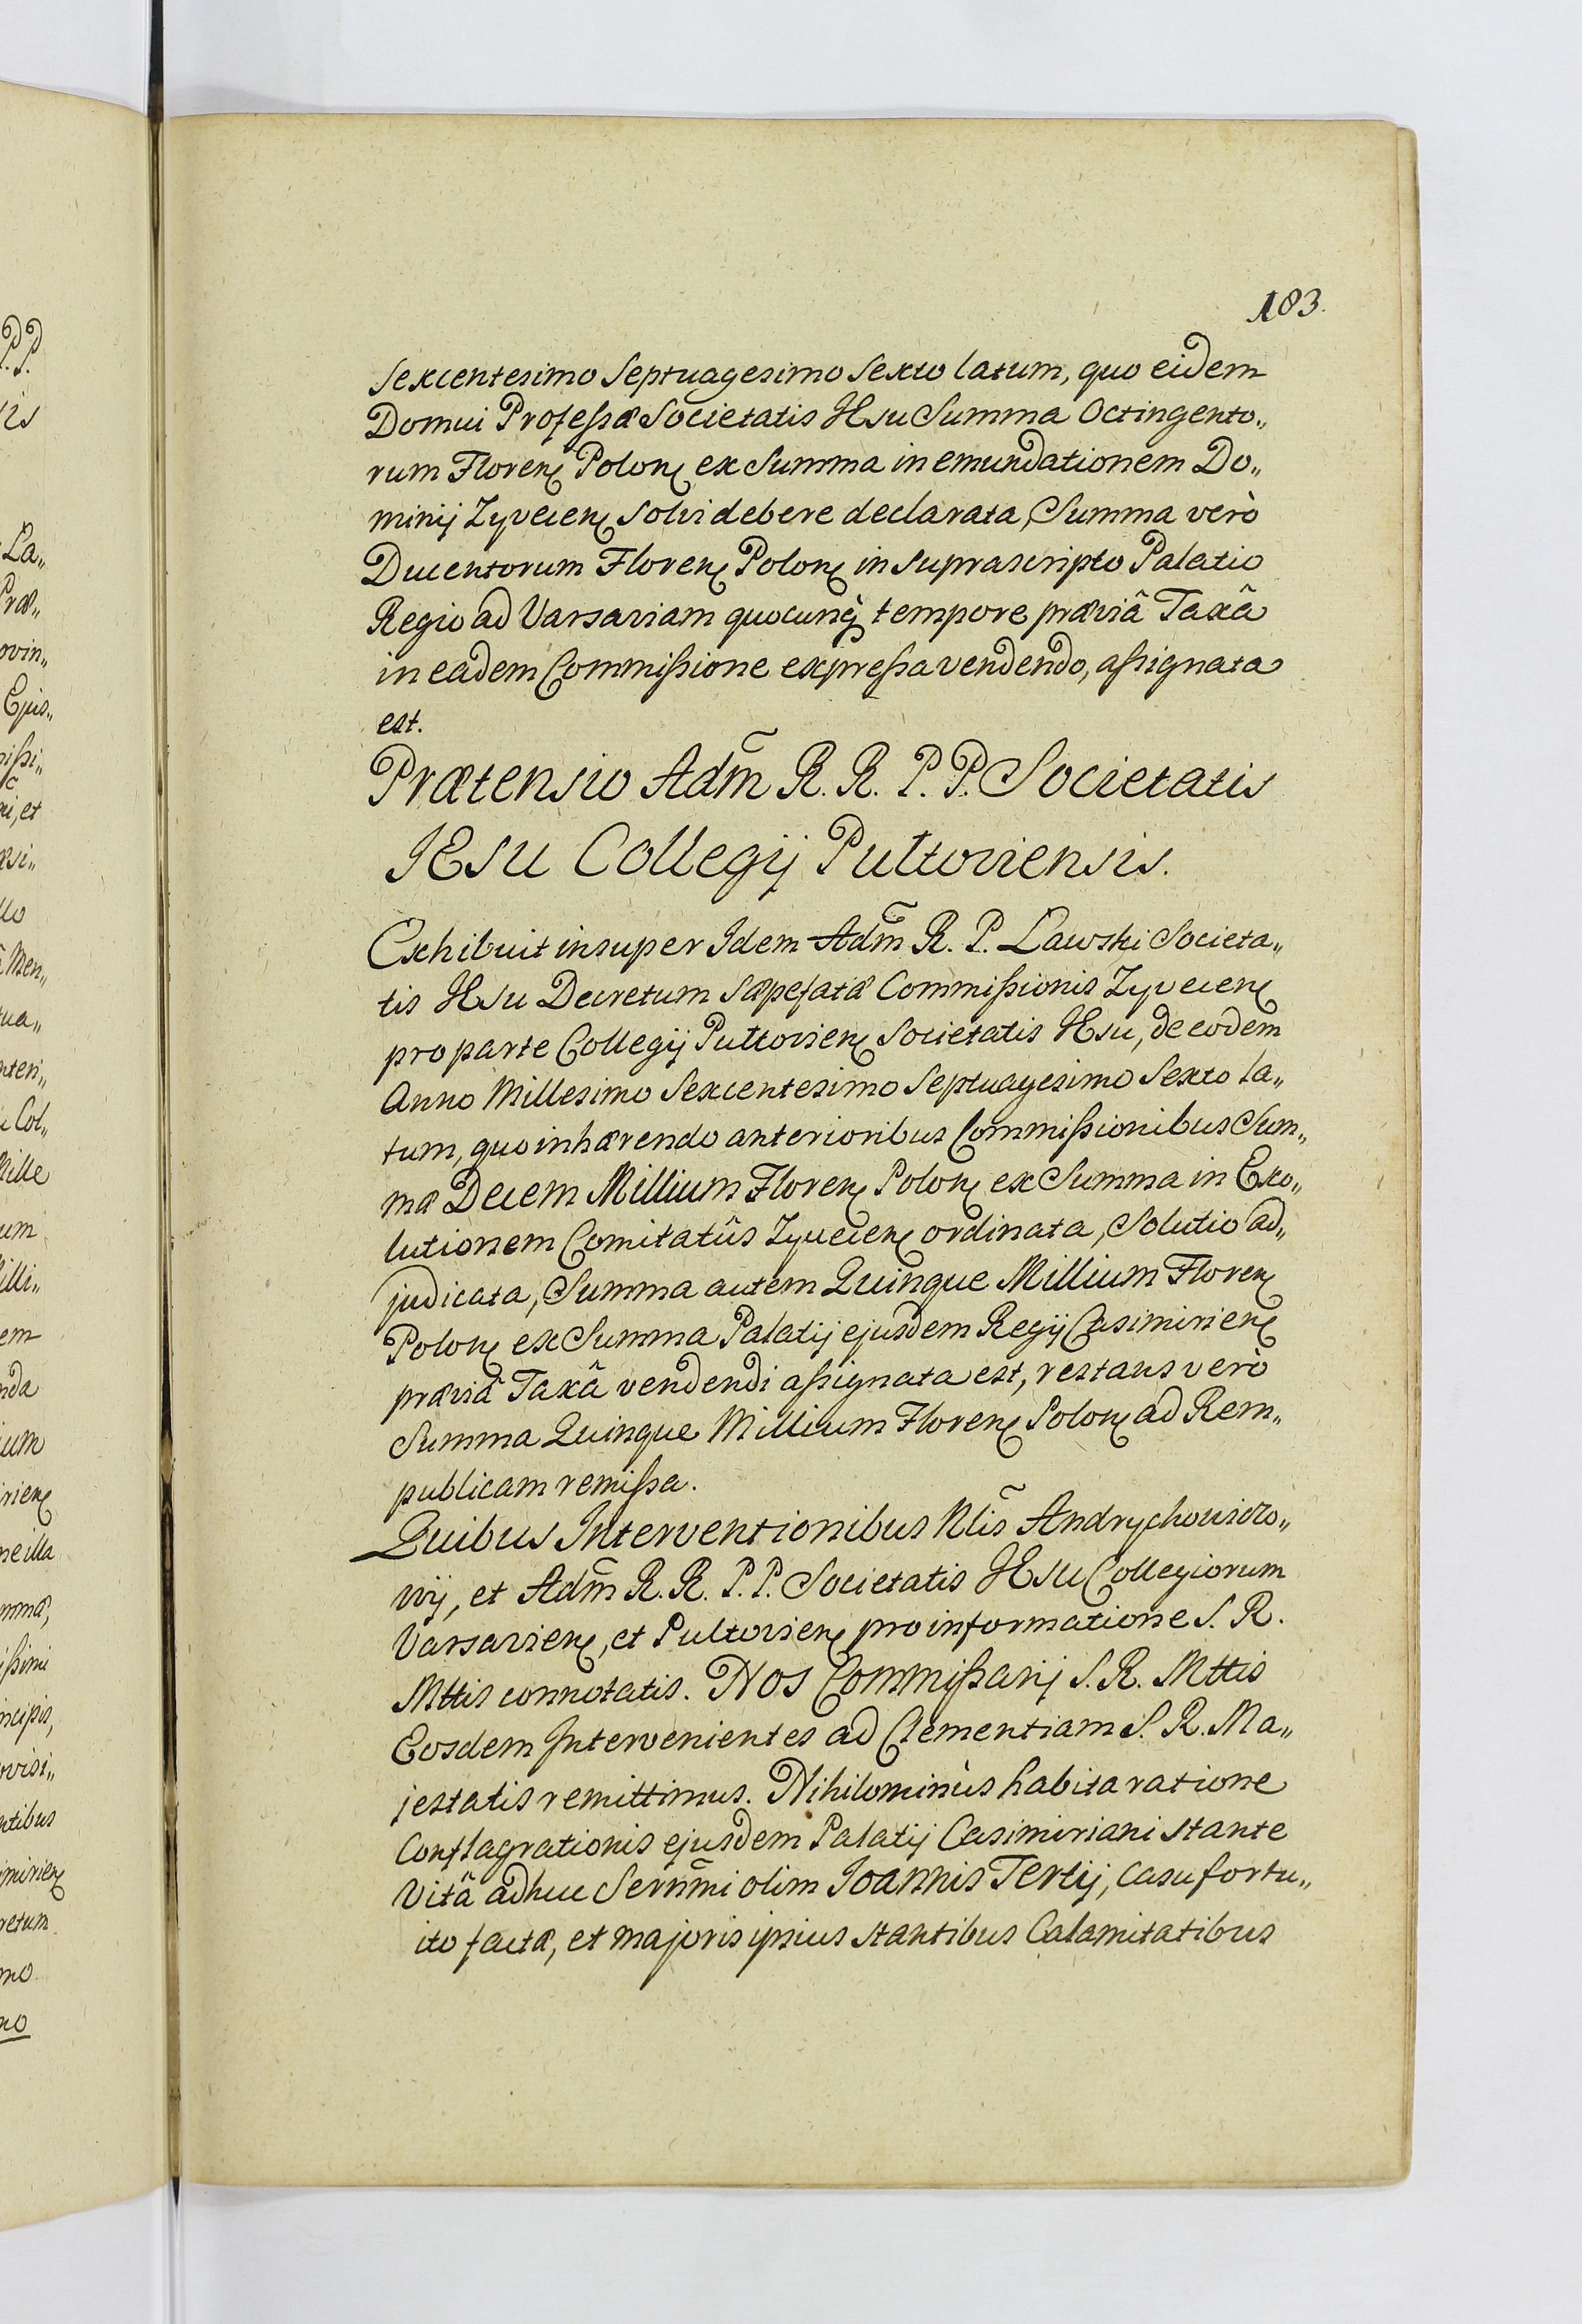 183.
sexcentesimo Septuagesimo Sexto latum, quo eidem
Domui Professæ Societatis IEsu Summa Octingento„
rum Floren̄ Polon̄ ex Summa in emundationem Do„
minij Zyvecen̄ solvi debere declarata, Summa verò
Ducentorum Floren̄ Polon̄ in suprascripto Palatio
Regio ad Varsaviam quocunq̀ tempore præviâ Taxâ
in eadem Commissione expressa vendendo, assignata
est.
Prætensio Adm̃ R. R. P. P. Societatis
IEsu Collegij Pultoviensis.
Exhibuit insuper Idem Adm̃ R. P. Lawski Societa„
tis IEsu Decretum sæpefatæ Commissionis Zyvecen̄
pro parte Collegij Pultovien̄ Societatis IEsu, de eodem
Anno Millesimo Sexcentesimo Septuagesimo Sexto la„
tum, quo inhærendo anterioribus Commissionibus Sum„
mæ Decem Millium Floren̄ Polon̄ ex Summa in Exo„
lutionem Comitatûs Zyvecen̄ ordinata, Solutio ad„
judicata, Summa autem Quinque Millium Floren̄
Polon̄ ex Summa Palatij ejusdem Regij Casimirien̄
præviâ Taxâ vendendi assignata est, restans verò
Summa Quinque Millium Floren̄ Polon̄ ad Rem„
publicam remissa.
Quibus Interventionibus Nlis̃ Andrychowiczo„
vij, et Adm̃ R. R. P. P. Societatis IEsu Collegiorum
Varsavien̄, et Pultovien̄ pro informatione S. R.
Mttis connotatis. Nos Commissarij S. R. Mttis
Eosdem Intervenientes ad Clementiam S. R. Ma„
jestatis remittimus. Nihilominùs habita ratione
Conflagrationis ejusdem Palatij Casimiriani stante
Vitâ adhuc Sernm̃i olim Ioannis Tertij, casu fortu„
ito factæ, et majoris ipsius stantibus Calamitatibus